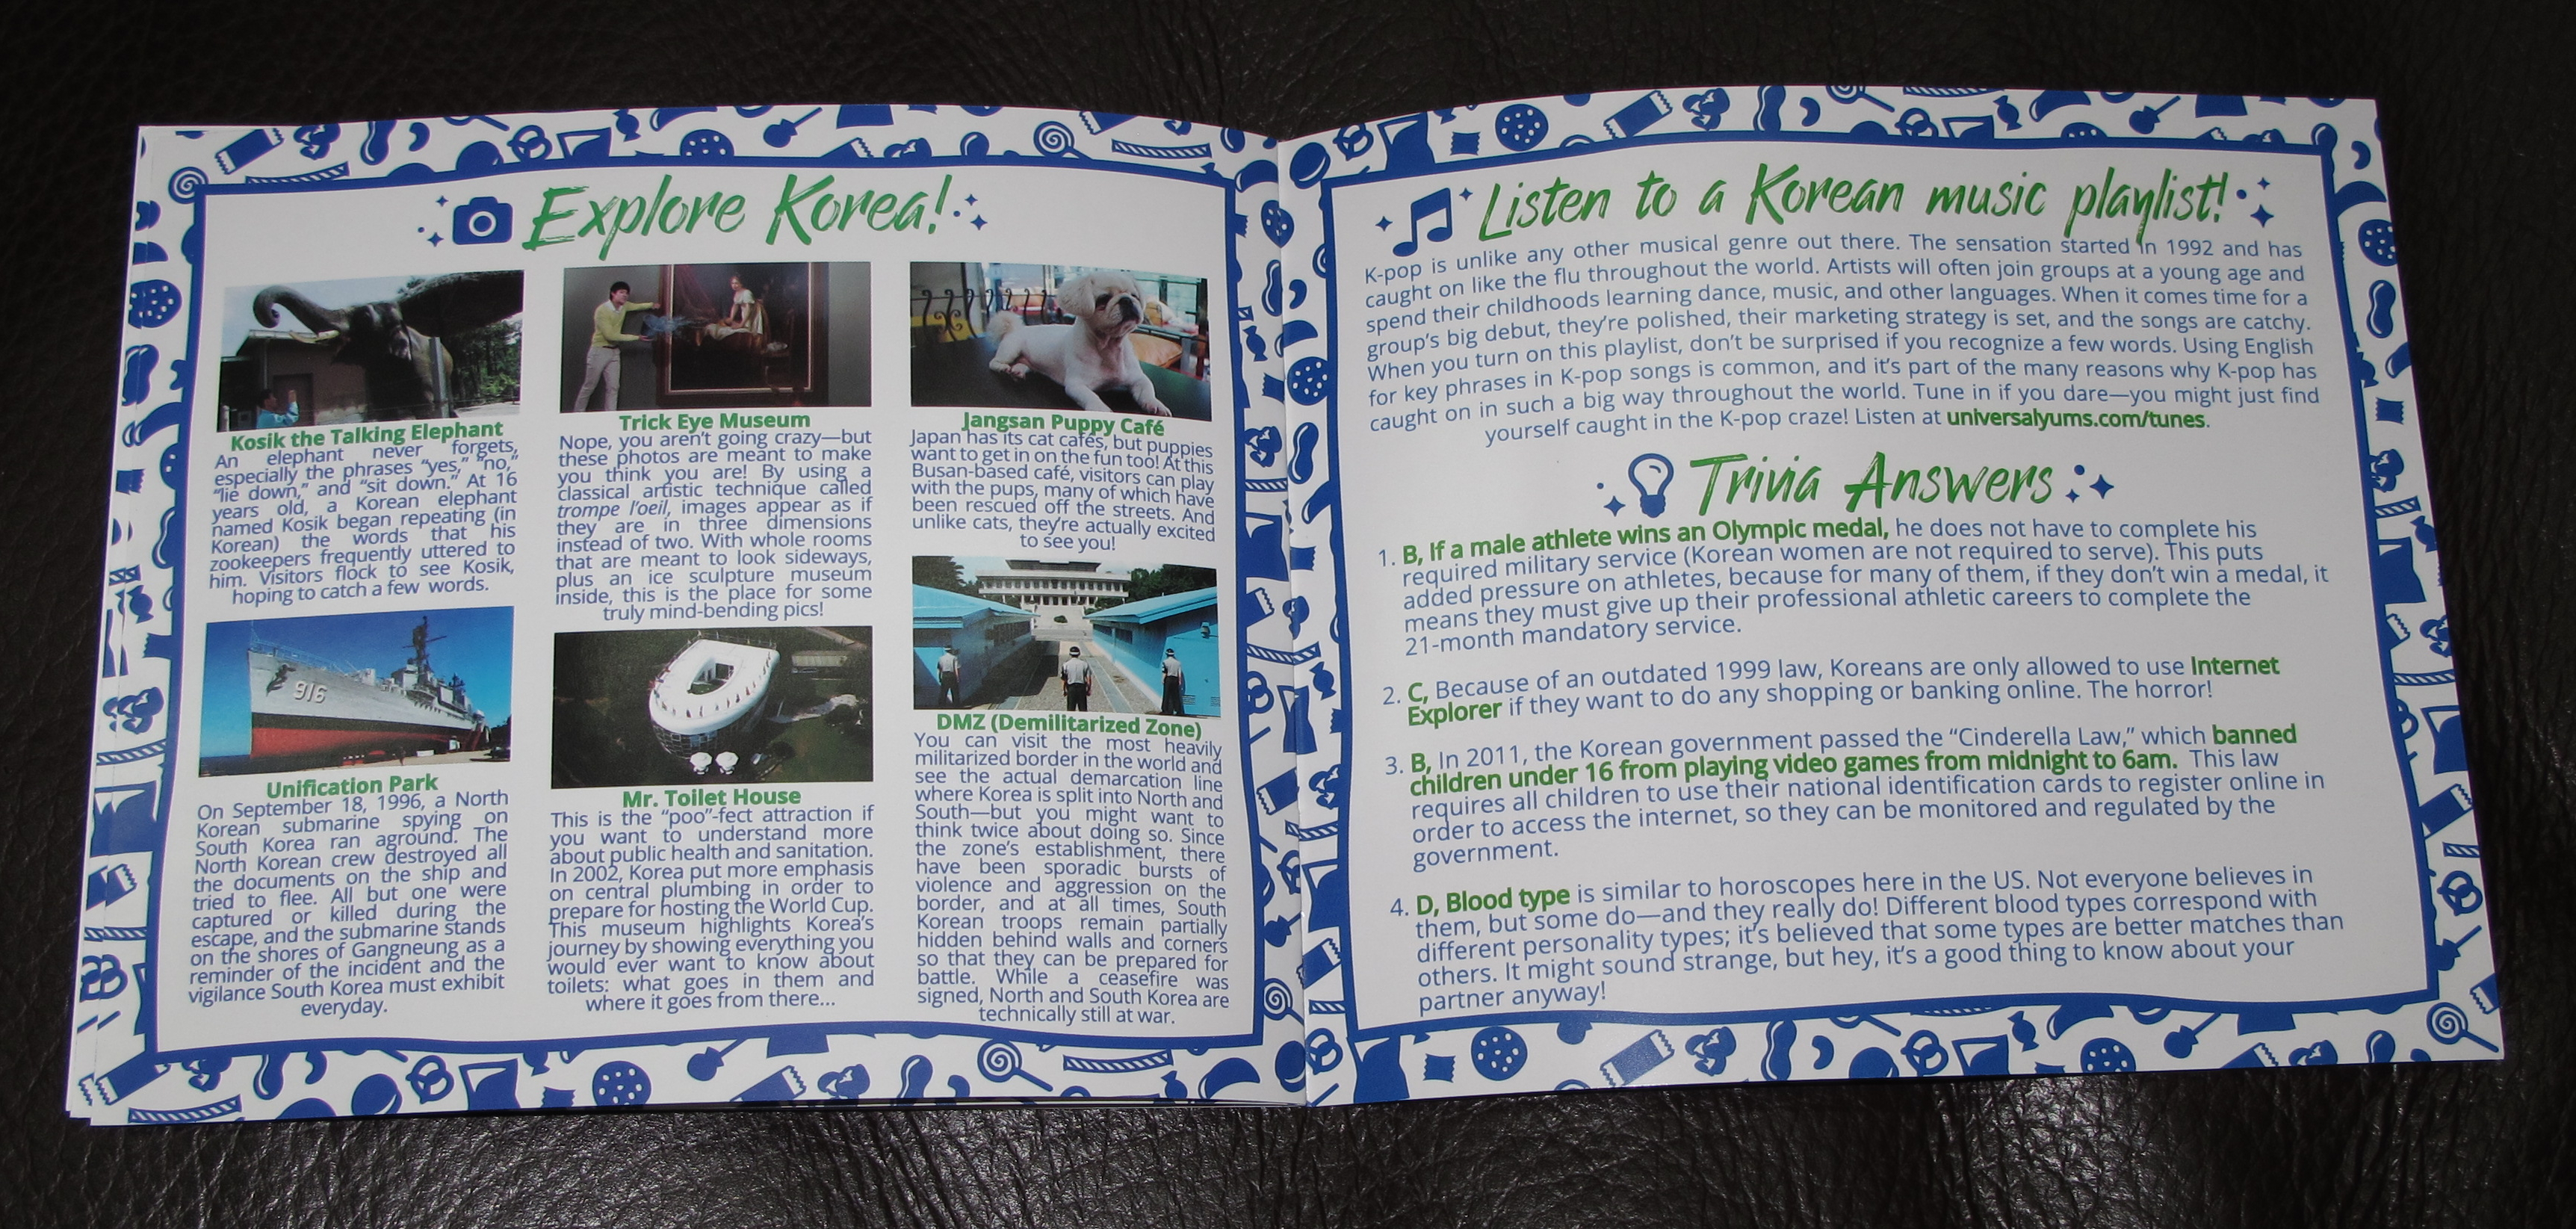 Explore Korea!
Kosik the Talking Elephant
An elephant never forgets,
especially the phrases “yes,” “no,”
“lie down,” and “sit down.” At 16
years old, a Korean elephant
named Kosik began repeating (in
Korean) the words that his
zookeepers frequently uttered to
him. Visitors flock to see Kosik,
hoping to catch a few words.
916
Unification Park
On September 18, 1996, a North
Korean submarine spying on
South Korea ran aground. The
North Korean crew destroyed all
the documents on the ship and
tried to flee. All but one were
captured or killed during the
escape, and the submarine stands
on the shores of Gangneung as a
reminder of the incident and the
vigilance South Korea must exhibit
everyday.
Trick Eye Museum
Nope, you aren’t going crazy—but
these photos are meant to make
you think you are! By using a
classical artistic technique called
trompe l’oeil, images appear as if
they are in three dimensions
instead of two. With whole rooms
that are meant to look sideways,
plus an ice sculpture museum
inside, this is the place for some
truly mind-bending pics!
Mr. Toilet House
This is the “poo”-fect attraction if
you want to understand more
about public health and sanitation.
In 2002, Korea put more emphasis
on central plumbing in order to
prepare for hosting the World Cup.
This museum highlights Korea’s
journey by showing everything you
would ever want to know about
toilets: what goes in them and
where it goes from there...
Jangsan Puppy Café
Japan has its cat cafés, but puppies
want to get in on the fun too! At this
Busan-based café, visitors can play
with the pups, many of which have
been rescued off the streets. And
unlike cats, they’re actually excited
to see you!
DMZ (Demilitarized Zone)
You can visit the most heavily
militarized border in the world and
see the actual demarcation line
where Korea is split into North and
South—but you might want to
think twice about doing so. Since
the zone’s establishment, there
have been sporadic bursts of
violence and aggression on the
border, and at all times, South
Korean troops remain partially
hidden behind walls and corners
so that they can be prepared for
battle. While a ceasefire was
signed, North and South Korea are
technically still at war.
Listen to a Korean music playlist!
K-pop is unlike any other musical genre out there. The sensation started in 1992 and has
caught on like the flu throughout the world. Artists will often join groups at a young age and
spend their childhoods learning dance, music, and other languages. When it comes time for a
group’s big debut, they’re polished, their marketing strategy is set, and the songs are catchy.
When you turn on this playlist, don’t be surprised if you recognize a few words. Using English
for key phrases in K-pop songs is common, and it’s part of the many reasons why K-pop has
caught on in such a big way throughout the world. Tune in if you dare—you might just find
yourself caught in the K-pop craze! Listen at universalyums.com/tunes.
Trivia Answers
1. B, If a male athlete wins an Olympic medal, he does not have to complete his
required military service (Korean women are not required to serve). This puts
added pressure on athletes, because for many of them, if they don’t win a medal, it
means they must give up their professional athletic careers to complete the
21-month mandatory service.
2. C, Because of an outdated 1999 law, Koreans are only allowed to use Internet
Explorer if they want to do any shopping or banking online. The horror!
3. B, In 2011, the Korean government passed the “Cinderella Law,” which banned
children under 16 from playing video games from midnight to 6am. This law
requires all children to use their national identification cards to register online in
order to access the internet, so they can be monitored and regulated by the
government.
4. D, Blood type is similar to horoscopes here in the US. Not everyone believes in
them, but some do—and they really do! Different blood types correspond with
different personality types; it’s believed that some types are better matches than
others. It might sound strange, but hey, it’s a good thing to know about your
partner anyway!